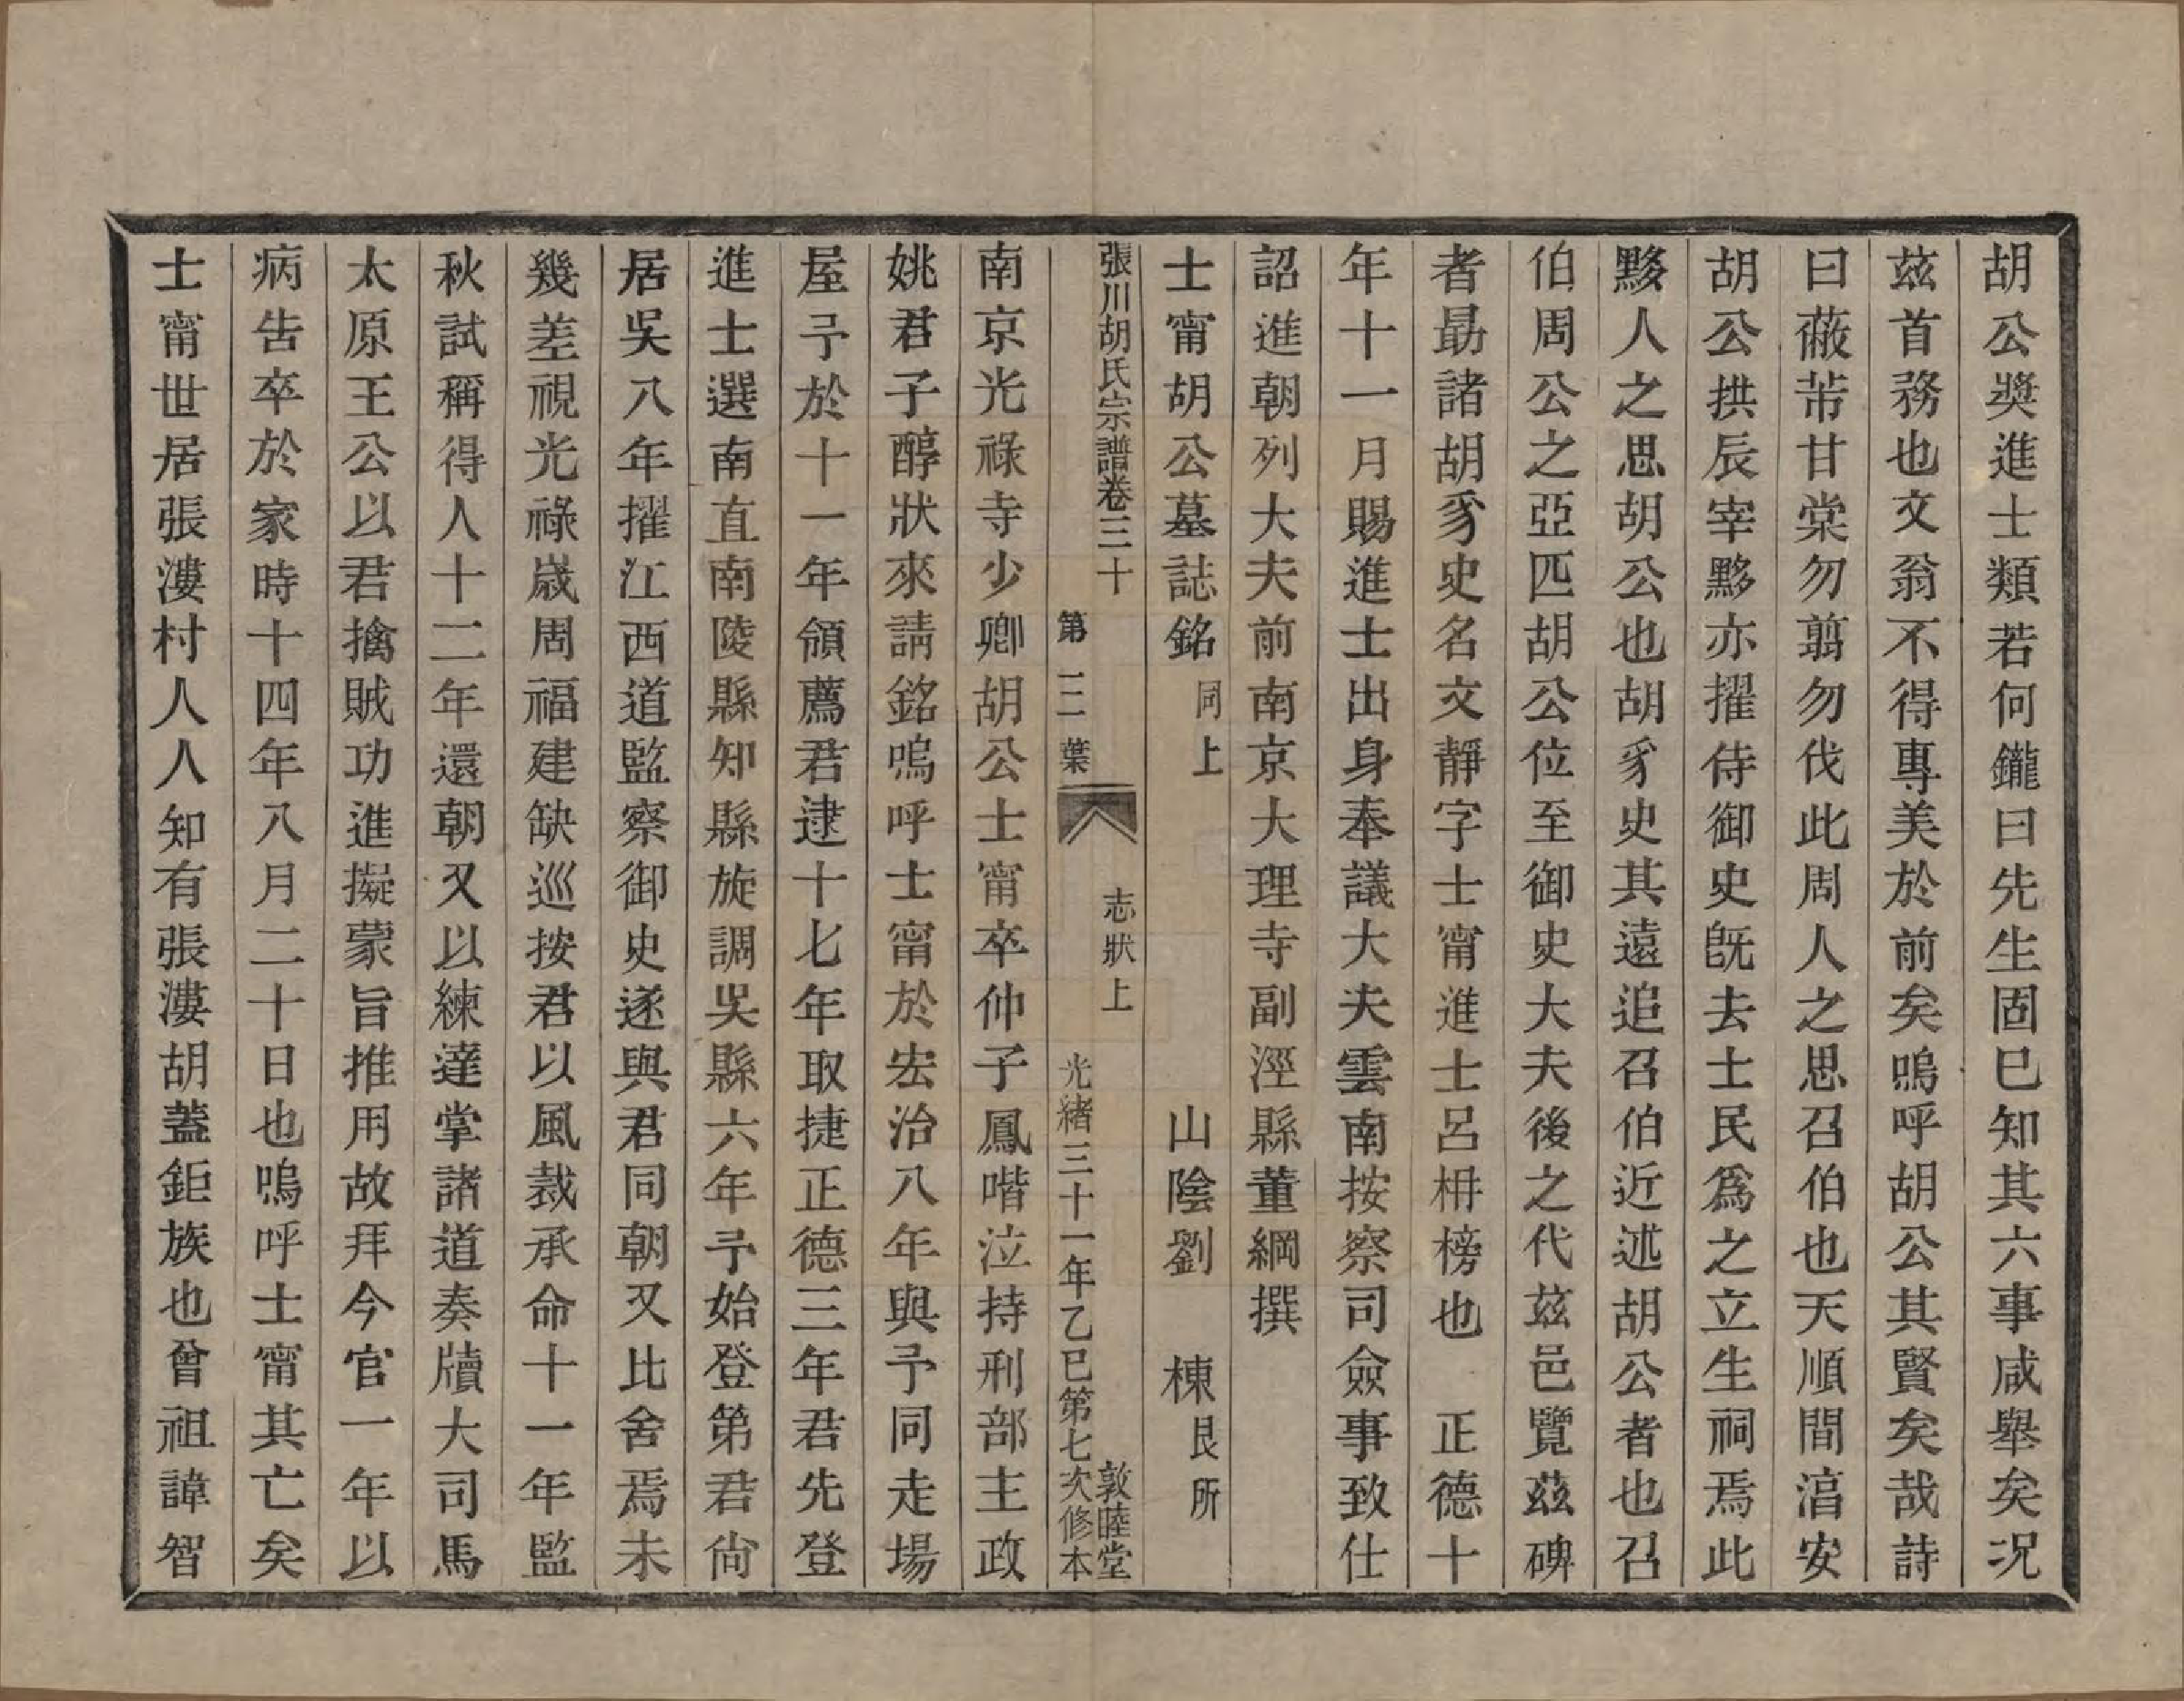 胡公獎進士類若何鑨曰先生固已知其六事咸舉矣况
茲首務也文翁不得專美於前矣嗚呼胡公其賢矣哉詩
曰蔽芾甘棠勿翦勿伐此周人之思召伯也天順間滈安
胡公拱辰宰黟亦擢侍御史旣去士民爲之立生祠焉此
黟人之思胡公也胡豸史其遠追召伯近述胡公者也召
伯周公之亞匹胡公位至御史大夫後之代茲邑覽茲碑
者勗諸胡豸史名文靜字士甯進士呂枏榜也　正德十
年十一月賜進士出身奉議大夫雲南按察司僉事致仕
詔進朝列大夫前南京大理寺副涇縣董綱撰
士甯胡公墓誌銘　同上　山陰劉　棟　艮所
張川胡氏宗譜卷三十　志狀上　敦睦堂
第三葉　光緒三十一年乙巳第七次修本
南京光祿寺少卿胡公士甯卒仲子鳳喈泣持刑部主政
姚君子醇狀來請銘嗚呼士甯於宏治八年與予同走場
屋予於十一年領薦君逮十七年取捷正德三年君先登
進士選南直南陵縣知縣旋調吳縣六年予始登第君尙
居吳八年擢江西道監察御史遂與君同朝又比舍焉未
幾差視光祿歲周福建缺巡按君以風裁承命十一年監
秋試稱得人十二年還朝又以練達掌諸道奏牘大司馬
太原王公以君擒賊功進擬蒙旨推用故拜今官一年以
病告卒於家時十四年八月二十日也嗚呼士甯其亡矣
士甯世居張漊村人人知有張漊胡蓋鉅族也曾祖諱智